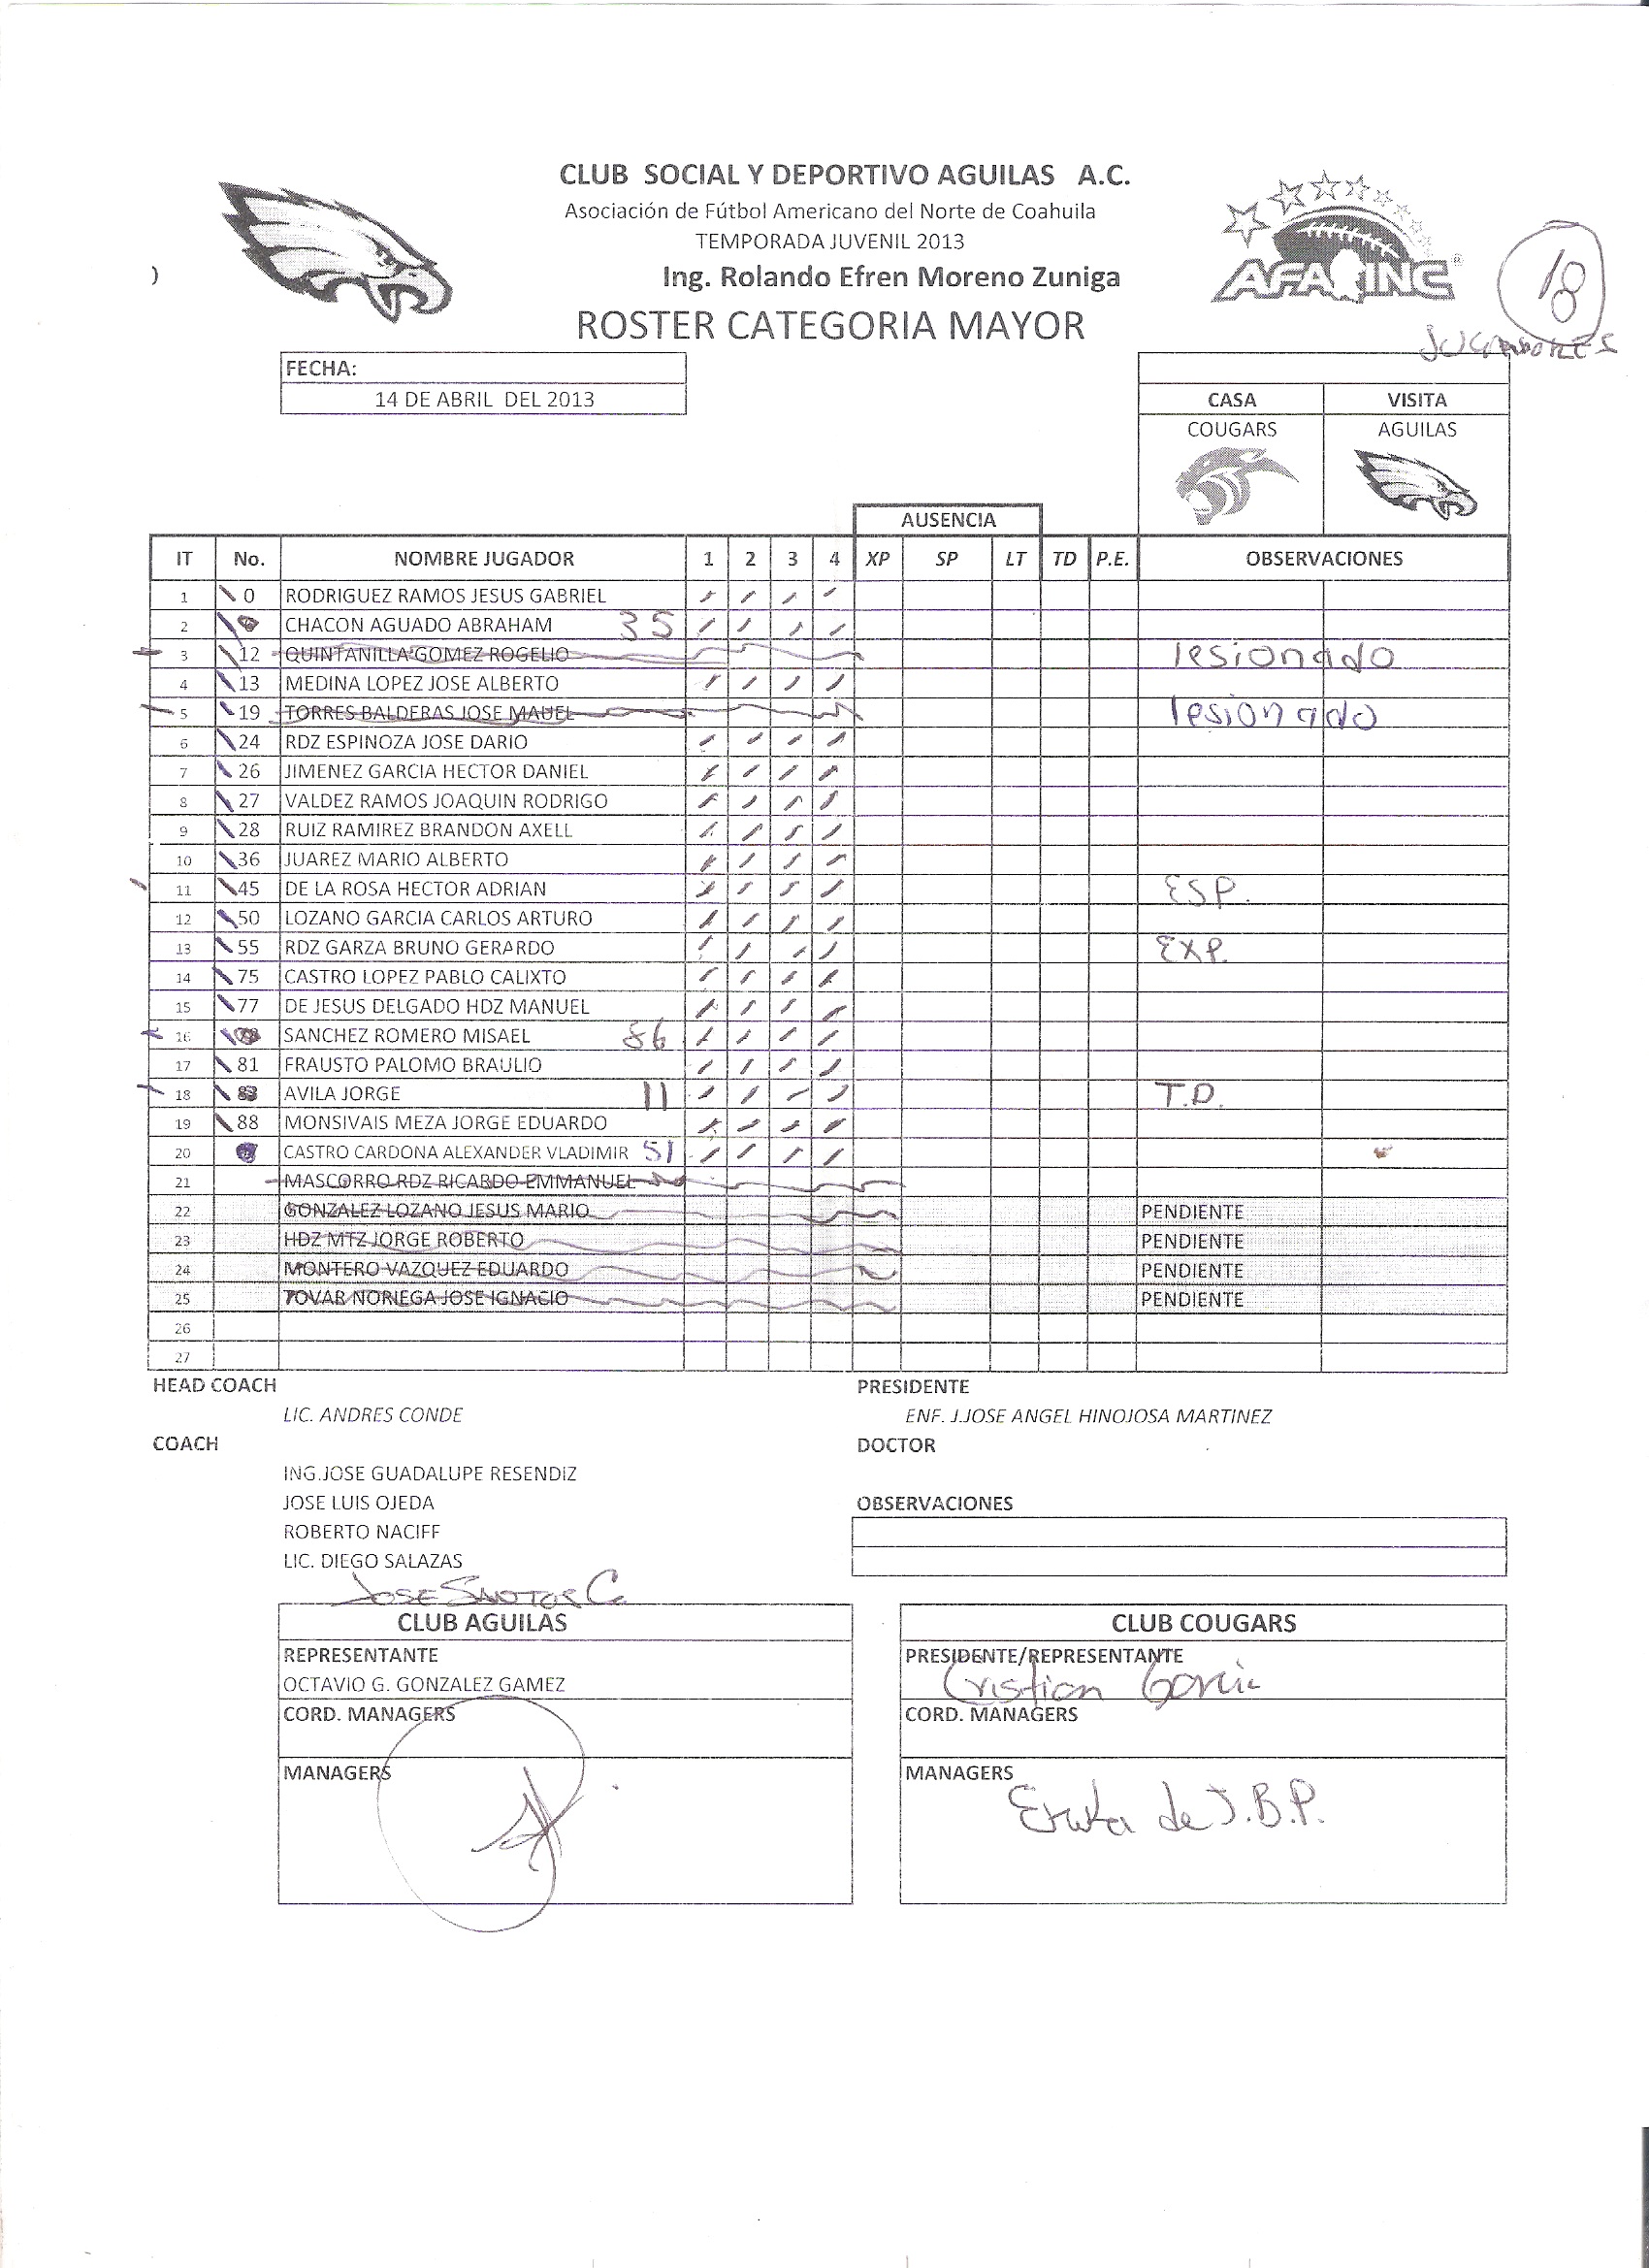 CLUB SOCIAL Y DEPORTIVO AGUILAS A.C.
Asociación de Fútbol Americano del Norte de Coahuila
TEMPORADA JUVENIL 2013
)
Ing. Rolando Efren Moreno Zuniga
AFA INC ®
18
JUGADORES
ROSTER CATEGORIA MAYOR
FECHA:
14 DE ABRIL DEL 2013
CASA VISITA
COUGARS AGUILAS
AUSENCIA
IT No. NOMBRE JUGADOR 1 2 3 4 XP SP LT TD P.E. OBSERVACIONES
1 0 RODRIGUEZ RAMOS JESUS GABRIEL
2 CHACON AGUADO ABRAHAM 35
3 12 QUINTANILLA GOMEZ ROGELIO lesionado
4 13 MEDINA LOPEZ JOSE ALBERTO
5 19 TORRES BALDERAS JOSE MAUEL lesionado
6 24 RDZ ESPINOZA JOSE DARIO
7 26 JIMENEZ GARCIA HECTOR DANIEL
8 27 VALDEZ RAMOS JOAQUIN RODRIGO
9 28 RUIZ RAMIREZ BRANDON AXELL
10 36 JUAREZ MARIO ALBERTO
11 45 DE LA ROSA HECTOR ADRIAN ESP.
12 50 LOZANO GARCIA CARLOS ARTURO
13 55 RDZ GARZA BRUNO GERARDO EXP.
14 75 CASTRO LOPEZ PABLO CALIXTO
15 77 DE JESUS DELGADO HDZ MANUEL
16 SANCHEZ ROMERO MISAEL 86
17 81 FRAUSTO PALOMO BRAULIO
18 AVILA JORGE 11 T.D.
19 88 MONSIVAIS MEZA JORGE EDUARDO
20 CASTRO CARDONA ALEXANDER VLADIMIR 51
21 MASCORRO RDZ RICARDO EMMANUEL
22 GONZALEZ LOZANO JESUS MARIO PENDIENTE
23 HDZ MTZ JORGE ROBERTO PENDIENTE
24 MONTERO VAZQUEZ EDUARDO PENDIENTE
25 TOVAR NORIEGA JOSE IGNACIO PENDIENTE
26
27
HEAD COACH PRESIDENTE
LIC. ANDRES CONDE ENF. J.JOSE ANGEL HINOJOSA MARTINEZ
COACH DOCTOR
ING.JOSE GUADALUPE RESENDIZ
JOSE LUIS OJEDA OBSERVACIONES
ROBERTO NACIFF
LIC. DIEGO SALAZAS
JOSE SANTOS C.
CLUB AGUILAS CLUB COUGARS
REPRESENTANTE PRESIDENTE/REPRESENTANTE
OCTAVIO G. GONZALEZ GAMEZ Cristian Garcia
CORD. MANAGERS CORD. MANAGERS
MANAGERS MANAGERS
de J.B.P.